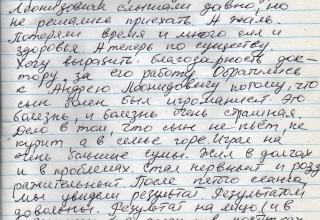 Леонидовича слышали давно, но
не решались приехать. А жаль.
Потеряли время и много сил и
здоровья. А теперь по существу.
Хочу выразить благодарность док-
тору, за его работу. Обратились
к Андрею Леонидовичу потому, что
сын болен был игроманией. Это
болезнь, и болезнь очень страшная.
Дело в том, что сын не пьёт, не
курит, а в семье горе. Играл на
очень большие суммы. Жил в долгах
и в проблемах. Стал нервный и разд
ражительный. После пятого сеанса
мы увидели результат. Результатом
довольны. Результат на лицо (и в